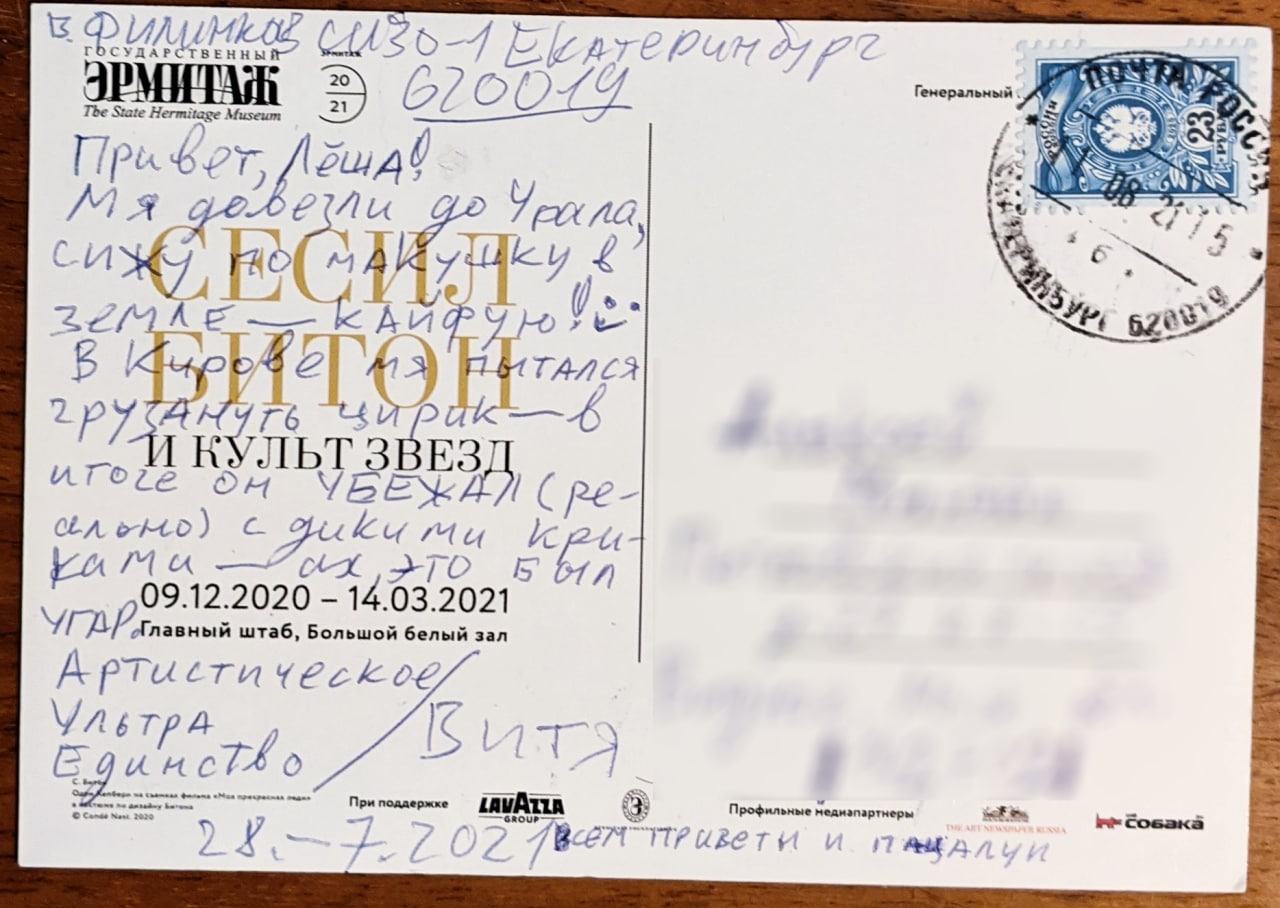 В. Филинков СИЗО-1 Екатеринбург
620019
ГОСУДАРСТВЕННЫЙ
ЭРМИТАЖ
The State Hermitage Museum
ЭРМИТАЖ
20
21
Генеральный
ПОЧТА РОССИИ
РОССИЯ
23
РУБЛЯ
08 21 15
6
ЕКАТЕРИНБУРГ 620019
Привет, Лёша!
Мя довезли до Урала,
сижу по макушку в
земле — КАЙФУЮ!
В Кирове мя пытался
грузануть цирик — в
итоге он УБЕЖАЛ (ре-
ально) с дикими кри-
ками — ах, это был
УГАР.
СЕСИЛ
БИТОН
И КУЛЬТ ЗВЕЗД
09.12.2020 – 14.03.2021
Главный штаб, Большой белый зал
Артистическое
Ультра
Единство
Витя
С. Битон
Одри Хепберн на съемках фильма «Моя прекрасная леди»
в костюме по дизайну Битона
© Condé Nast. 2020
При поддержке
LAVAZZA
GROUP
Профильные медиапартнеры
THE ART NEWSPAPER RUSSIA
СОБАКА
28.–7.2021
всем приветы и пацалуи